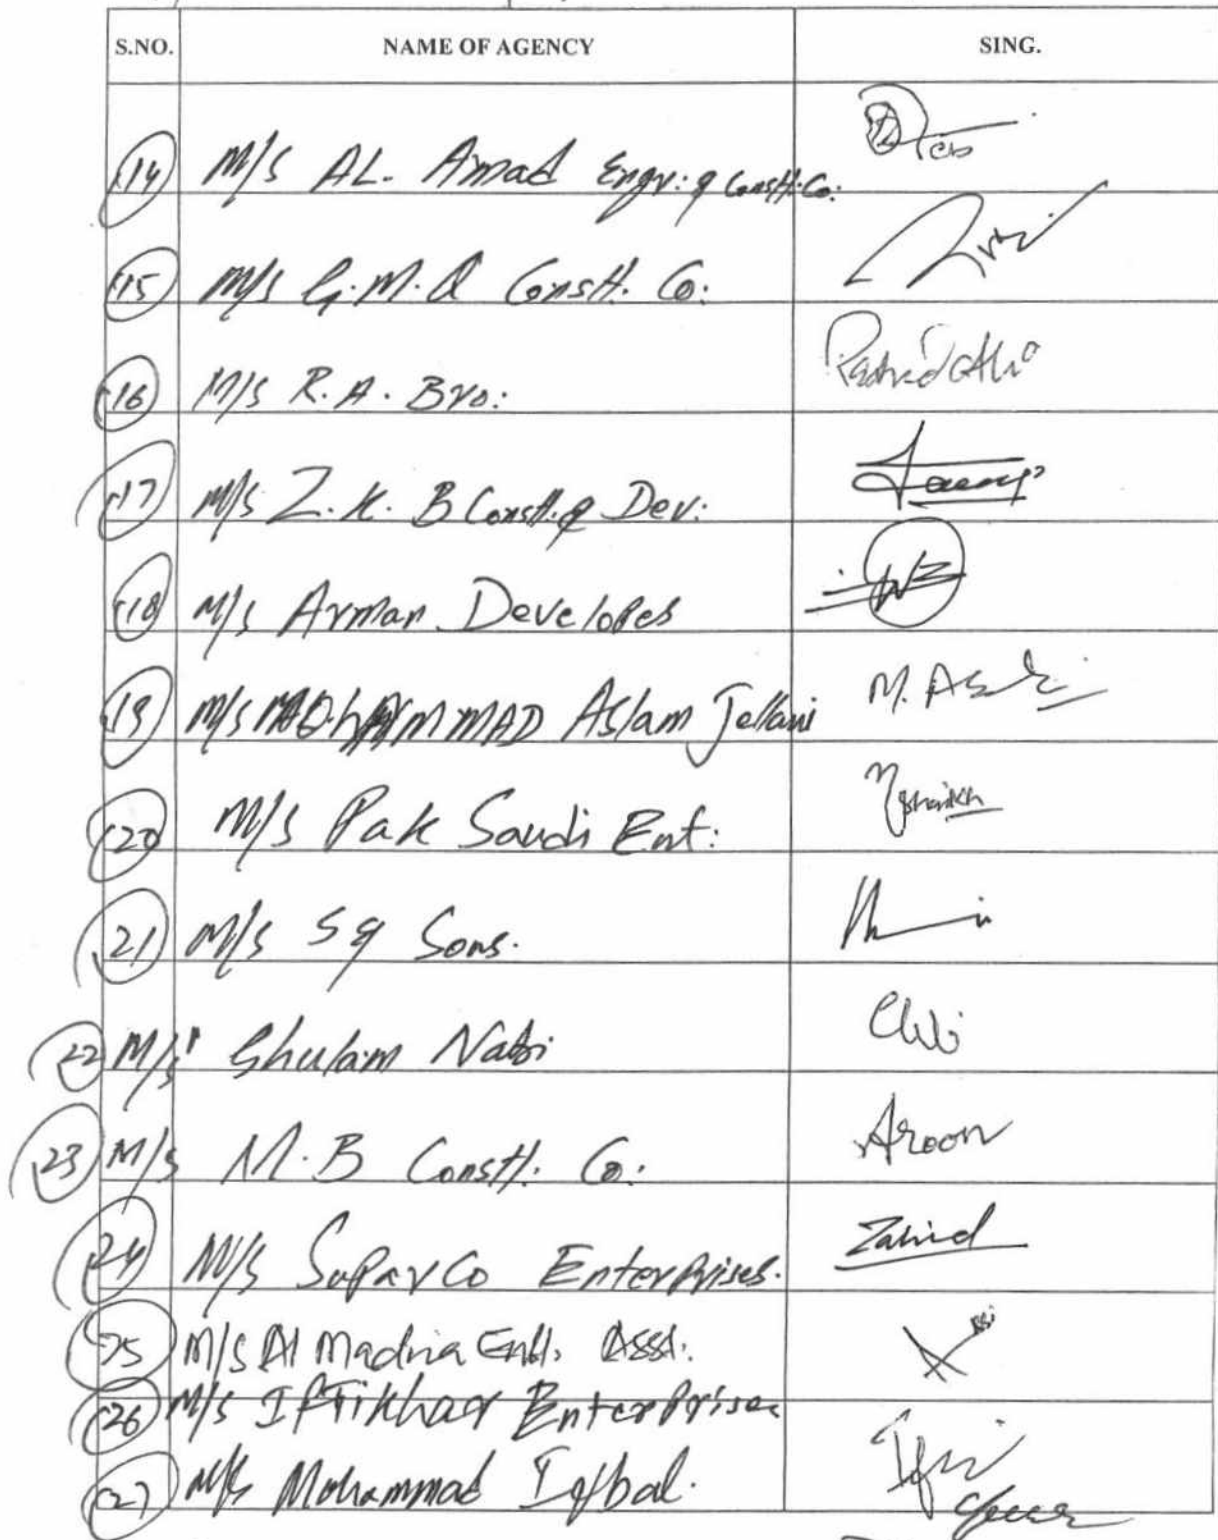 S.NO. NAME OF AGENCY SING.
14 M/s AL. Amad Engr: & Constt: Co:
15 M/s G.M.Q Constt. Co:
16 M/s R.A. Bro: Rashid Ali
17 M/s Z.K. B Constt. & Dev:
18 M/s Arman Develop​es
19 M/s MOHAMMAD Aslam Jellani M. As
20 M/s Pak Saudi Ent: Shaikh
21 M/s S & Sons.
22 M/s Ghulam Nabi
23 M/s M.B Constt. Co: Aroon
24 M/s SuparCo Enterprises. Zahid
25 M/s Al Madina Ent. Asst.
26 M/s Iftikhar Enterprises
27 M/s Mohammad Iqbal.